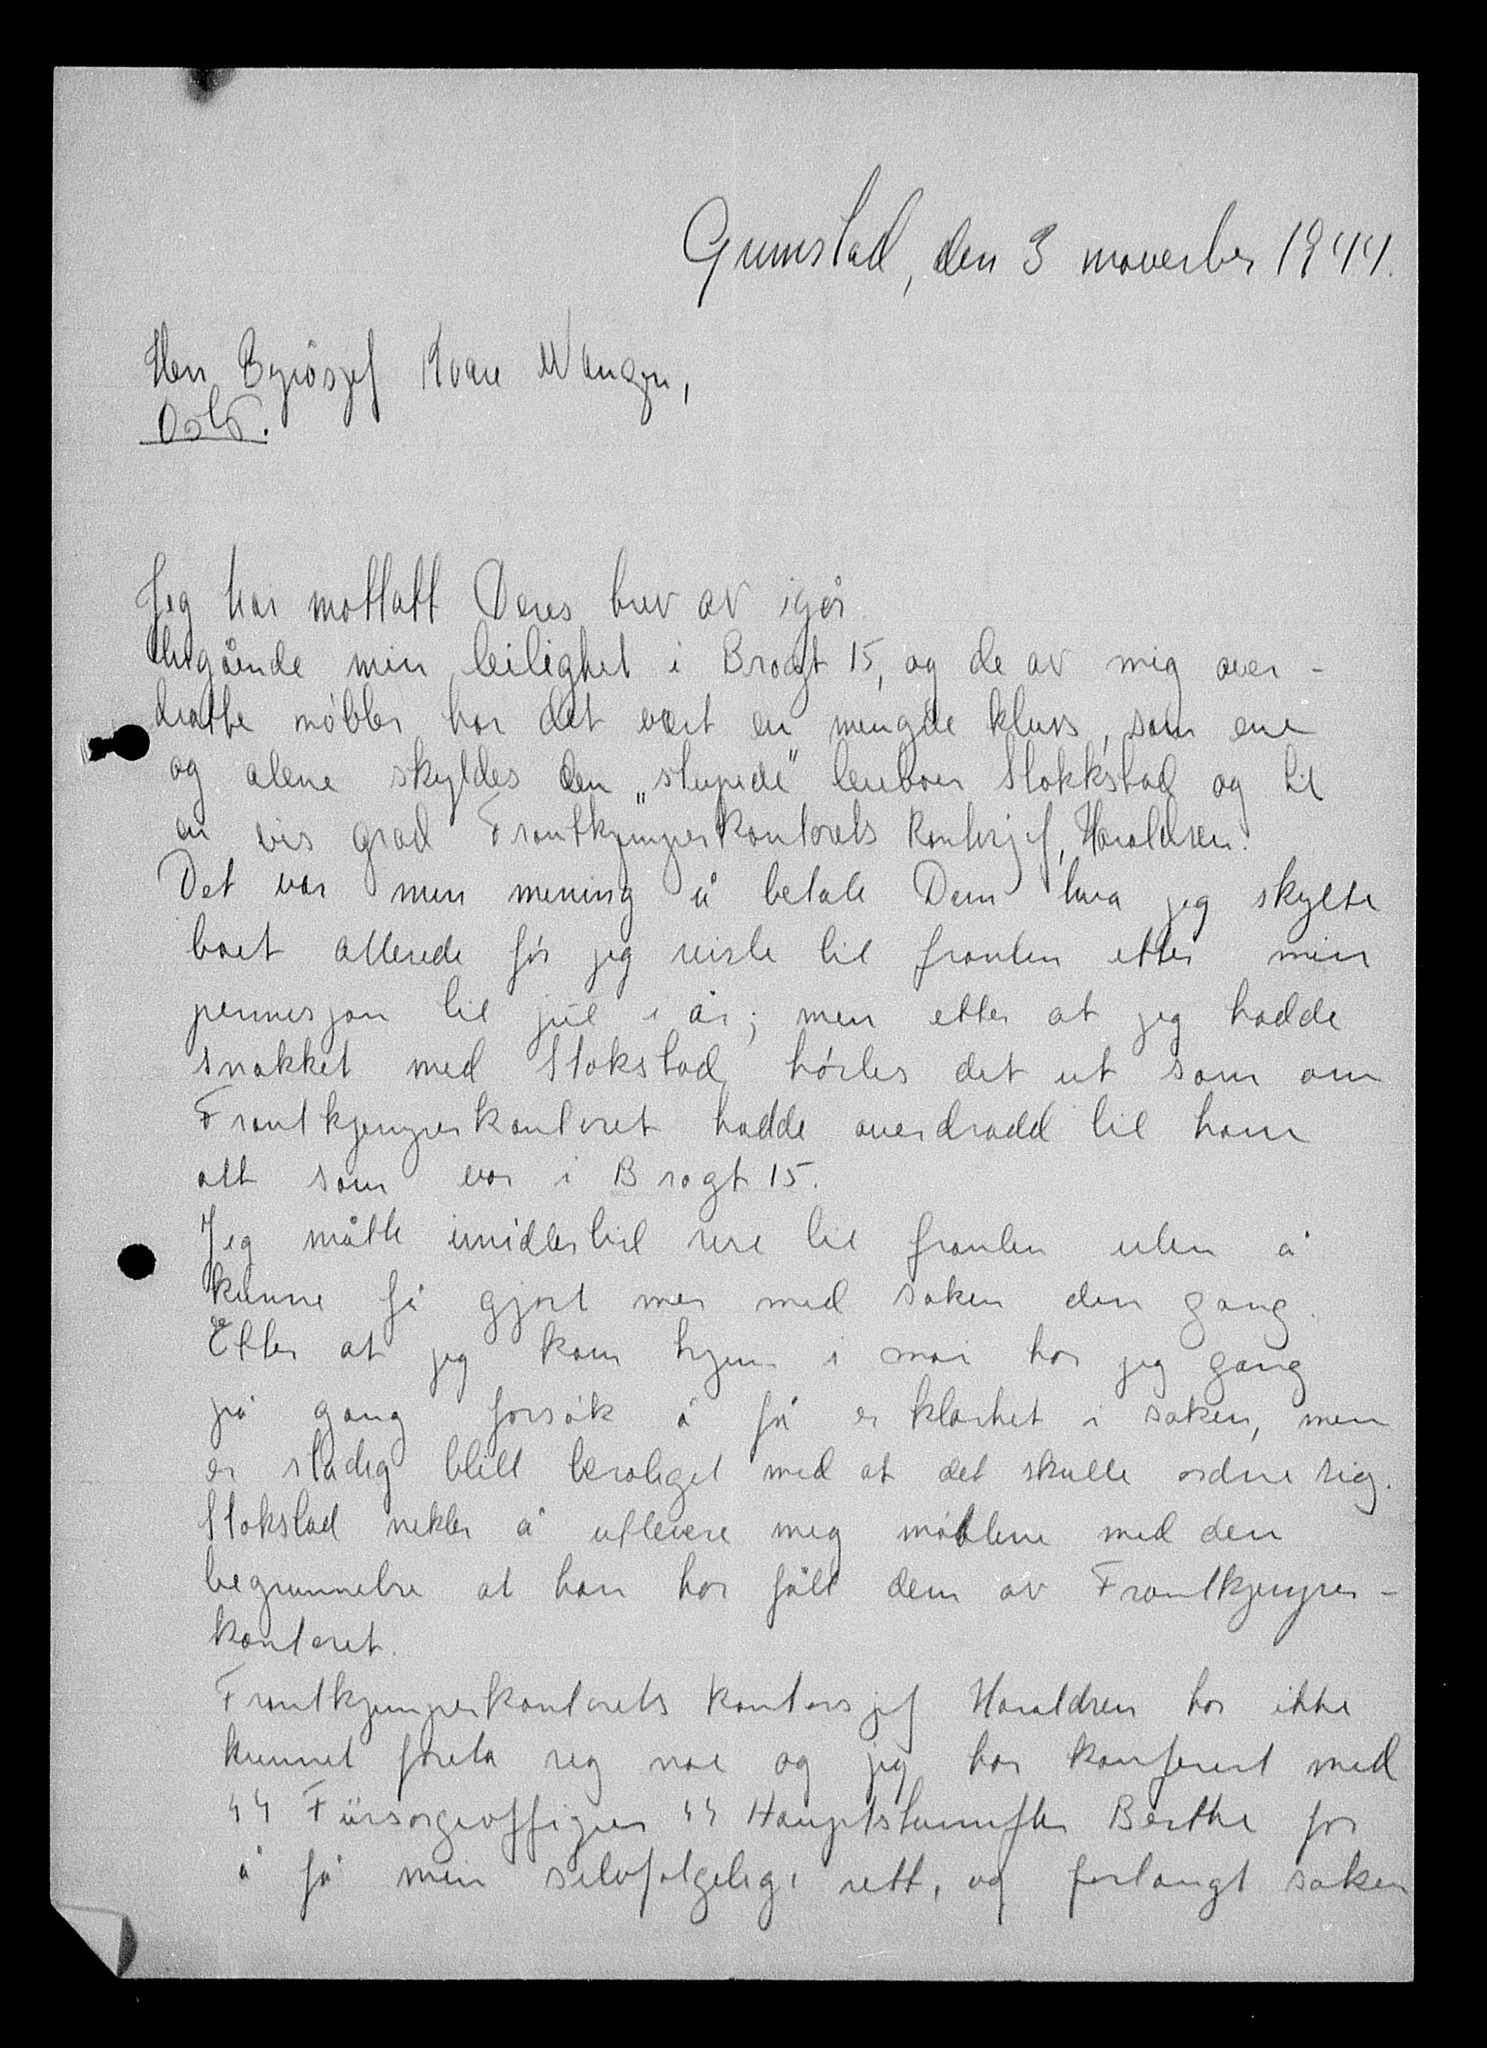 Grimstad, den 3 november 1944.
Herr Byråsjef Kåre Wangen,
Oslo.
Jeg har mottatt Deres brev av igår
Angående min leilighet i Brogt 15, og de av mig over-
dratte møbler har det vært en mengde kluss, som ene
og alene skyldes den „stupide" leieboer Stokkstad og til
en vis grad Frontkjemperkontorets kontorsjef, Haraldsen.
Det var min mening å betale Dem hva jeg skylte
boet allerede før jeg reiste til fronten etter min
permisjon til jul i år; men etter at jeg hadde
snakket med Stokstad, hørtes det ut som om
Frontkjemperkontoret hadde overdradd til ham
alt som var i Brogt 15.
Jeg måtte imidlertid reise til fronten uten å
kunne få gjort mer med saken den gang.
Etter at jeg kom hjem i mai har jeg gang
på gang forsøk å få er klarhet i saken, men
er stadig blitt beroliget med at det skulle ordne sig.
Stokstad nekter å utlevere meg møblene med den
begrunnelse at han har fått dem av Frontkjemper-
kontoret.
Frontkjemperkontorets kontorsjef Haraldsen har ikke
kunnet foreta seg noe og jeg har konferert med
SS Fürsorgeoffizier SS Hauptsturmfhr Berthe for
å få min selvfølgelige rett, og forlangt saken